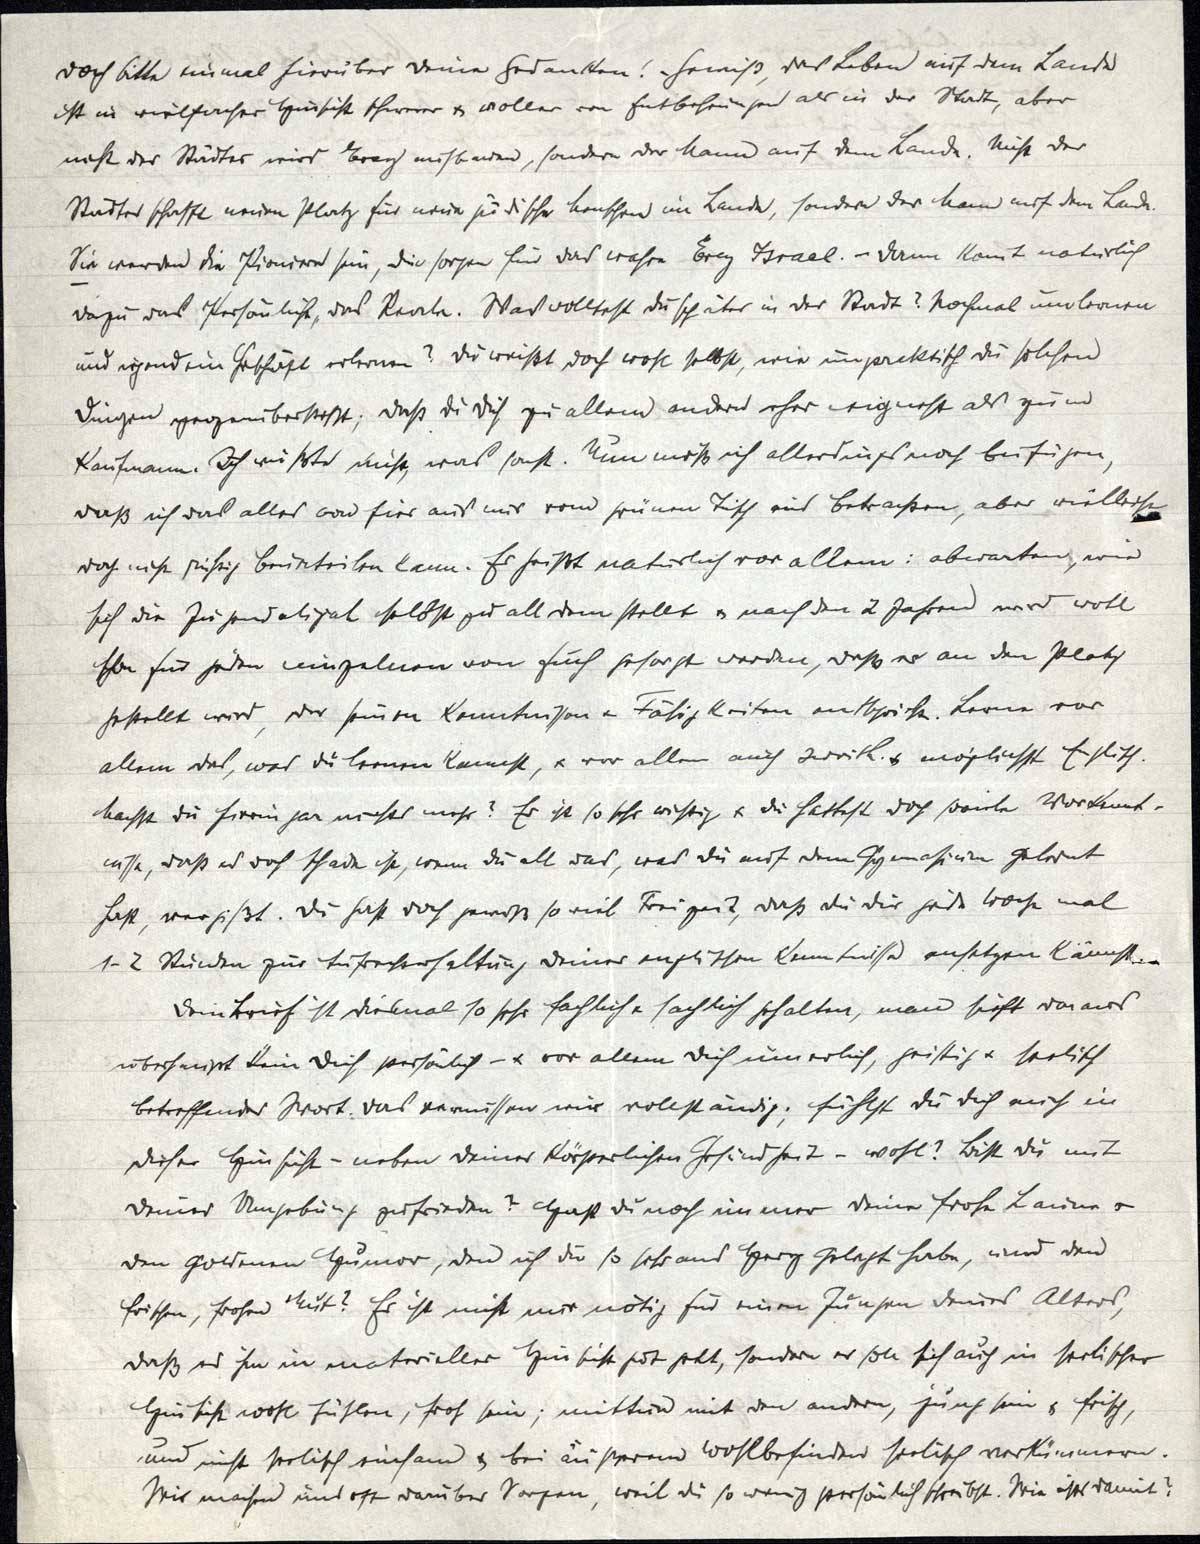 doch bitte einmal hierüber deine Gedanken! – Gewiß, das Leben auf dem Lande
ist in vielfacher Hinsicht schwerer & voller von Entbehrungen als in der Stadt, aber
nicht der Städter wird Erez aufbauen, sondern der Mann auf dem Lande. Nicht der
Städter schafft neuen Platz für neue jüdische Menschen im Lande, sondern der Mann auf dem Lande.
Sie werden die Pioniere sein, die sorgen für das wahre Erez Israel. – Dann kommt natürlich
dazu das Persönliche, das Reale. Was wolltest du später in der Stadt? Nochmal umlernen
und irgend ein Geschäft erlernen? Du weißt doch wohl selbst, wie unpraktisch du solchen
Dingen gegenüberstehst; daß du dich zu allem andern eher eignest als zum
Kaufmann. Ich wüßte nicht, was sonst. Nun muß ich allerdings noch beifügen,
daß ich das alles von hier aus nur vom grünen Tisch aus betrachten, aber vielleicht
doch nicht richtig beurteilen kann. Es heißt natürlich vor allem: abwarten, wie
sich die Jugendalijah selbst zu all dem stellt & nach den 2 Jahren wird wohl
schon für jeden einzelnen von Euch gesorgt werden, daß er an den Platz
gestellt wird, der seinen Kenntnissen & Fähigkeiten entspricht. Lerne vor
allem das, was du lernen kannst, & vor allem auch Iwrith & möglichst Englisch.
Machst du hierin gar nichts mehr? Es ist so sehr wichtig & du hattest doch soviele Vorkennt-
nisse, daß es doch schade ist, wenn du all das, was du auf dem Gymnasium gelernt
hast, vergißt. Du hast doch gewiß so viel Freizeit, daß du dir jede Woche mal
1–2 Stunden zur Aufrechterhaltung deiner englischen Kenntnisse ansetzen könntest. –
Dein Brief ist diesmal so sehr fachlich & sachlich gehalten, man sieht daraus
überhaupt kein dich persönlich – & vor allem dich innerlich, geistig & seelisch
betreffendes Wort. Das vermissen wir vollständig; fühlst du dich auch in
dieser Hinsicht – neben deiner körperlichen Gesundheit – wohl? Bist du mit
deiner Umgebung zufrieden? Hast du noch immer deine frohe Laune &
den goldenen Humor, den ich dir so sehr ans Herz gelegt habe, und den
frischen, frohen Mut? Es ist nicht nur nötig für einen Jungen deines Alters,
daß es ihm in materieller Hinsicht gut geht, sondern er soll sich auch in seelischer
Hinsicht wohl fühlen, froh sein; mittun mit den andern, jung sein & frisch,
und nicht seelisch einsam & bei äußerem Wohlbefinden seelisch verkümmern.
Wir machen uns oft darüber Sorgen, weil du so wenig persönlich schreibst. Wie ists damit?